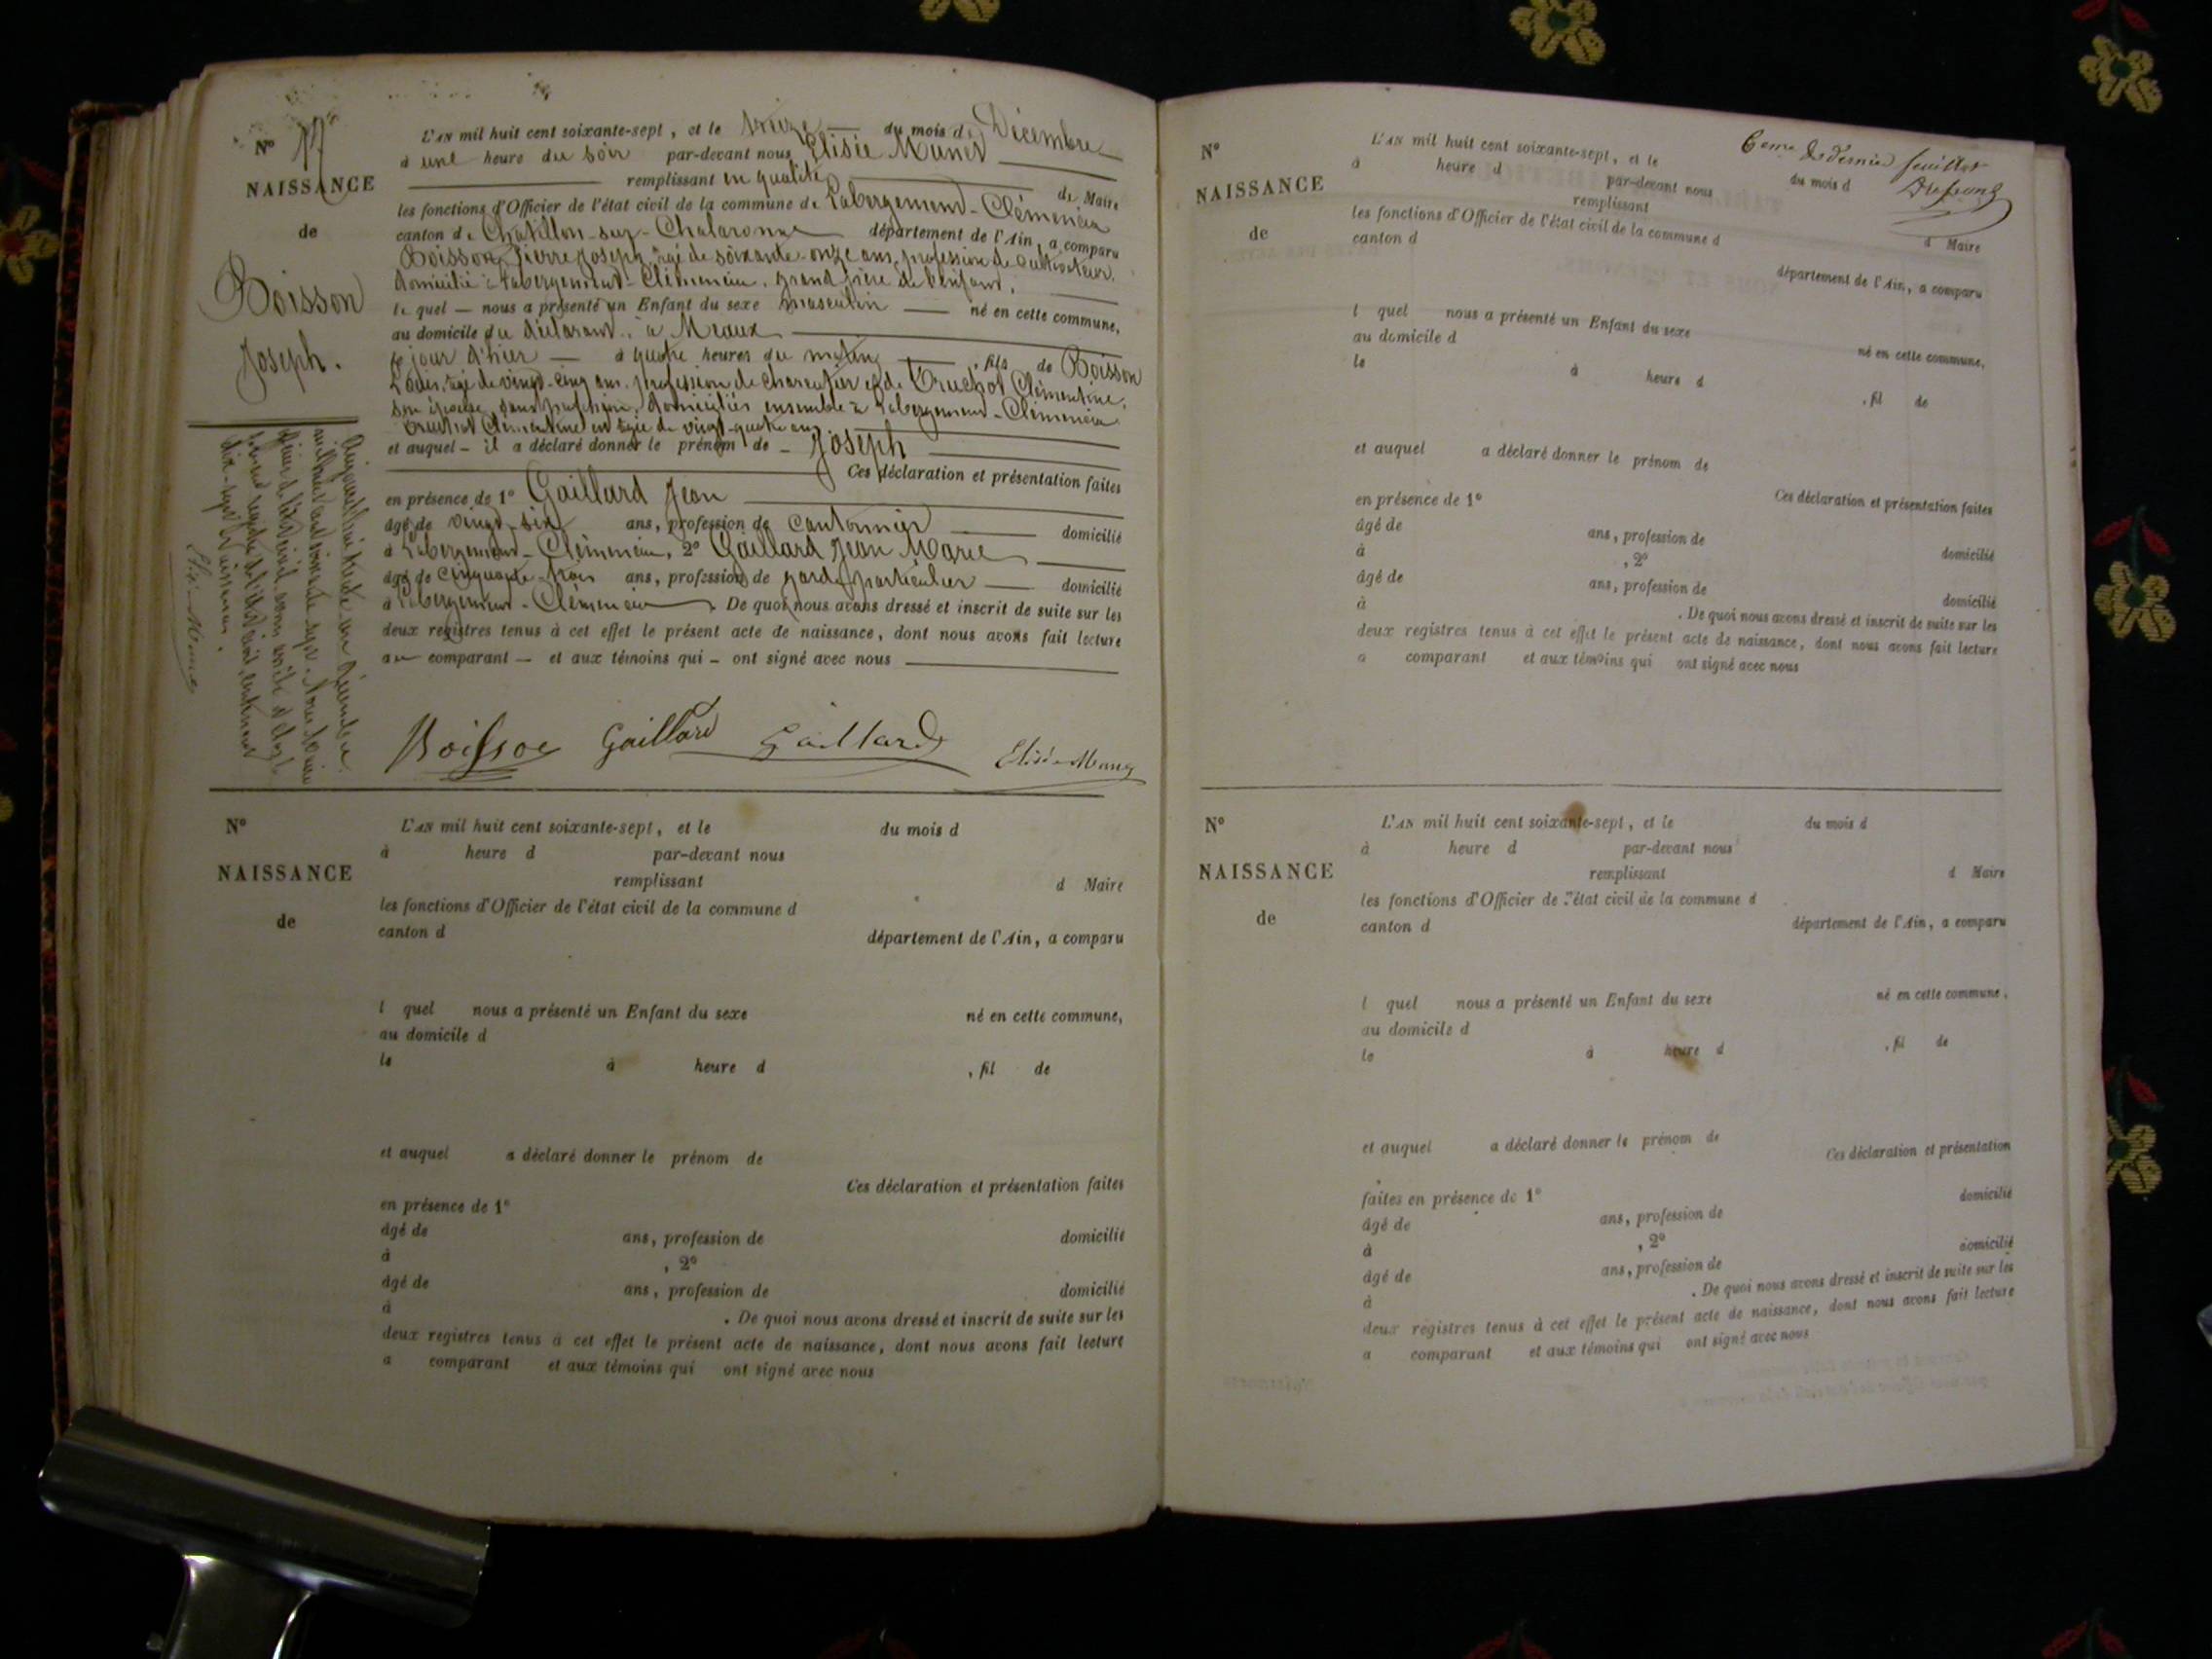 N° 17
NAISSANCE
de
Boisson
Joseph.
L'AN mil huit cent soixante-sept, et le treize du mois de Décembre
à une heure du soir par-devant nous Elisée Munet
remplissant en qualité de Maire
les fonctions d'Officier de l'état civil de la commune de L'abergement-Clémenciat
canton de Chatillon-sur-Chalaronne département de l'Ain, a comparu
Boisson Pierre Joseph âgé de soixante-onze ans, profession de cultivateur,
domicilié à L'abergement-Clémenciat, grand père de l'enfant,
lequel — nous a présenté un Enfant du sexe masculin — né en cette commune,
au domicile du déclarant, à Meaux
le jour d'hier — à quatre heures du matin, fils de Boisson
âgé de vingt-cinq ans, profession de charcutier et de Truchot Clémentine,
son épouse, sans profession, domiciliés ensemble à L'abergement-Clémenciat
Truchot Clémentine est âgée de vingt-quatre ans
et auquel — il a déclaré donner le prénom de — Joseph
Ces déclaration et présentation faites
en présence de 1° Gaillard Jean
âgé de vingt-six ans, profession de cantonnier domicilié
à L'abergement-Clémenciat, 2° Gaillard Jean Marie
âgé de cinquante-trois ans, profession de garde particulier — domicilié
à L'abergement-Clémenciat. De quoi nous avons dressé et inscrit de suite sur les
deux registres tenus à cet effet le présent acte de naissance, dont nous avons fait lecture
au comparant — et aux témoins qui — ont signé avec nous
Boisson Gaillard Gaillard
Aujourd'hui trente un Décembre
mil huit cent soixante-sept, Nous Maire
officier de l'état civil, avons arrêté et clos le
présent registre de l'état civil, contenant
dix-sept naissances.
N°
NAISSANCE
de
L'AN mil huit cent soixante-sept, et le du mois d
à heure d par-devant nous
remplissant d Maire
les fonctions d'Officier de l'état civil de la commune d
canton d département de l'Ain, a comparu
l quel nous a présenté un Enfant du sexe né en cette commune,
au domicile d
le à heure d , fil de
et auquel a déclaré donner le prénom de
Ces déclaration et présentation faites
en présence de 1°
âgé de ans, profession de domicilié
à , 2°
âgé de ans, profession de domicilié
à . De quoi nous avons dressé et inscrit de suite sur les
deux registres tenus à cet effet le présent acte de naissance, dont nous avons fait lecture
a comparant et aux témoins qui ont signé avec nous
6eme & dernier feuillet
N°
NAISSANCE
de
L'AN mil huit cent soixante-sept, et le du mois d
à heure d par-devant nous
remplissant d Maire
les fonctions d'Officier de l'état civil de la commune d
canton d département de l'Ain, a comparu
l quel nous a présenté un Enfant du sexe né en cette commune,
au domicile d
le à heure d , fil de
et auquel a déclaré donner le prénom de
Ces déclaration et présentation faites
en présence de 1°
âgé de ans, profession de domicilié
à , 2°
âgé de ans, profession de domicilié
à . De quoi nous avons dressé et inscrit de suite sur les
deux registres tenus à cet effet le présent acte de naissance, dont nous avons fait lecture
a comparant et aux témoins qui ont signé avec nous
N°
NAISSANCE
de
L'AN mil huit cent soixante-sept, et le du mois d
à heure d par-devant nous
remplissant d Maire
les fonctions d'Officier de l'état civil de la commune d
canton d département de l'Ain, a comparu
l quel nous a présenté un Enfant du sexe né en cette commune,
au domicile d
le à heure d , fil de
et auquel a déclaré donner le prénom de
Ces déclaration et présentation
faites en présence de 1° domicilié
âgé de ans, profession de
à , 2° domicilié
âgé de ans, profession de
à . De quoi nous avons dressé et inscrit de suite sur les
deux registres tenus à cet effet le présent acte de naissance, dont nous avons fait lecture
a comparant et aux témoins qui ont signé avec nous